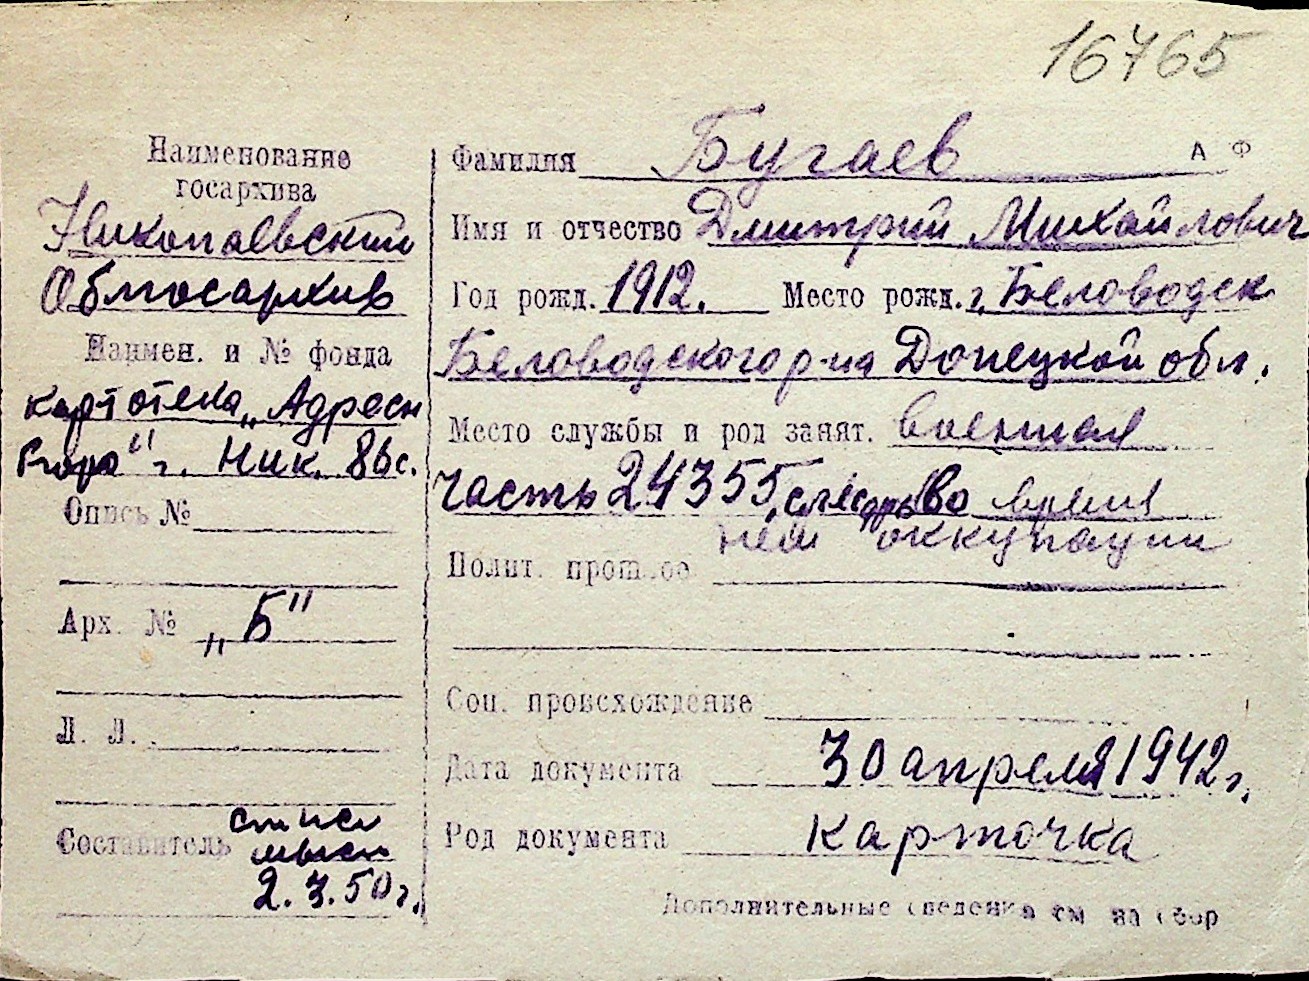 16765
Наименование
госархива
Николаевский
Облгосархив
Наимен. и № фонда
картотека „Адресн
бюро" г. Ник. 86с.
Опись №
Арх. № „Б"
Л. Л.
Составитель
2.3.50 г.
Фамилия Бугаев А Ф
Имя и отчество Дмитрий Михайлович
Год рожд. 1912. Место рожд. г. Беловодск
Беловодского р-на Донецкой обл.
Место службы и род занят. военная
часть 24355, слесарь Во время
нем оккупации
Полит. прошлое
Соц. происхождение
Дата документа 30 апреля 1942 г.
Род документа карточка
Дополнительные сведения см на обор